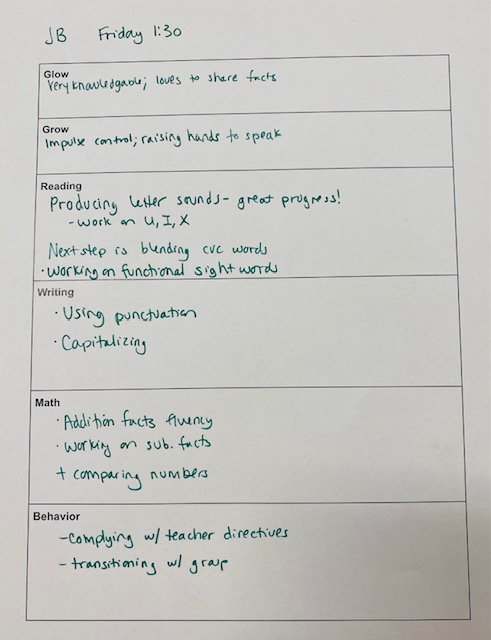 JB Friday 1:30
Glow
Very knowledgable; loves to share facts
Grow
Impulse control; raising hands to speak
Reading
Producing letter sounds- great progress!
- work on U, I, X
Next step is blending cvc words
· Working on functional sight words
Writing
· Using punctuation
· Capitalizing
Math
· Addition facts fluency
· Working on sub. facts
+ comparing numbers
Behavior
- Complying w/ teacher directives
- transitioning w/ group